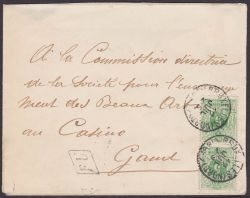 À la Commission directrice
de la Société pour l'encourage
ment des Beaux Arts
au Casino
Gand